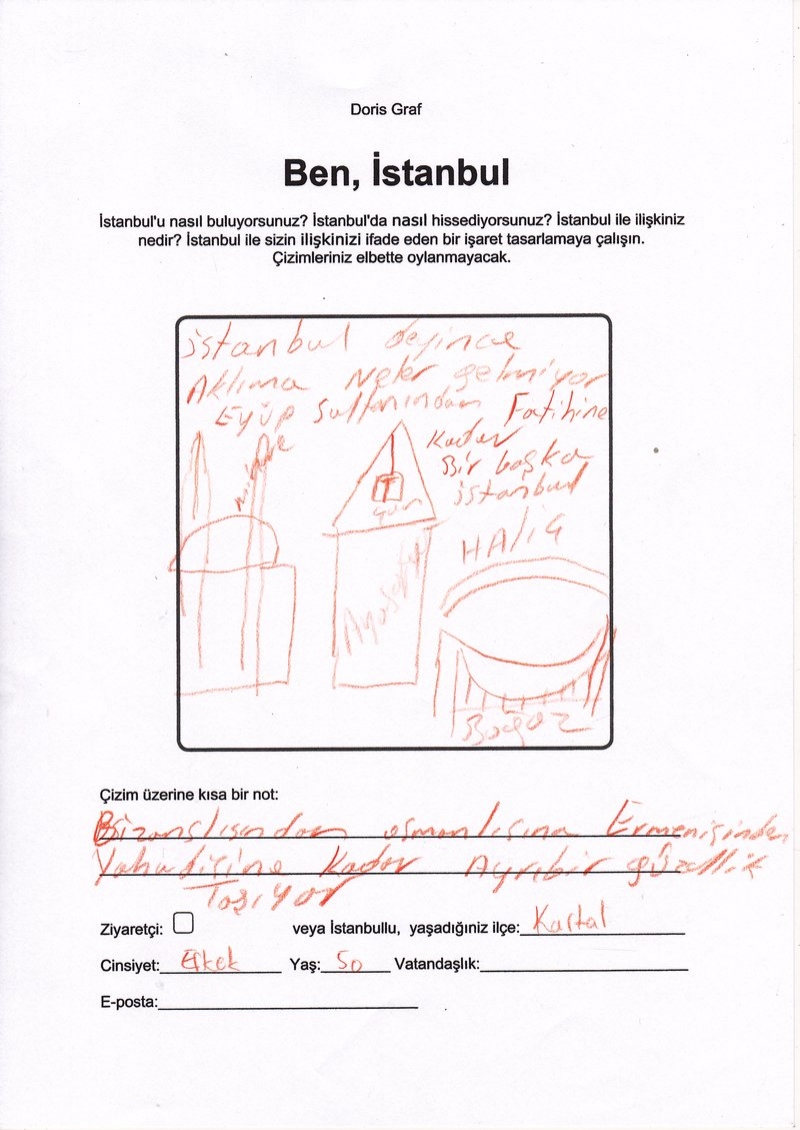 Doris Graf
Ben, İstanbul
İstanbul'u nasıl buluyorsunuz? İstanbul'da nasıl hissediyorsunuz? İstanbul ile ilişkiniz
nedir? İstanbul ile sizin ilişkinizi ifade eden bir işaret tasarlamaya çalışın.
Çizimleriniz elbette oylanmayacak.
istanbul deyince
Aklıma Neler gelmiyor
Eyüp Sultanından Fatihine
Kadar
Bir başka
istanbul
minare
çan
HALiÇ
Ayasofya
Boğaz
Çizim üzerine kısa bir not:
Bizanslısından osmanlısına Ermenisinden
Yahudisine Kadar Ayrıbir güzellik
Taşıyor
Ziyaretçi: veya İstanbullu, yaşadığiniz ilçe: Kartal
Cinsiyet: Erkek Yaş: 50 Vatandaşlık:
E-posta: